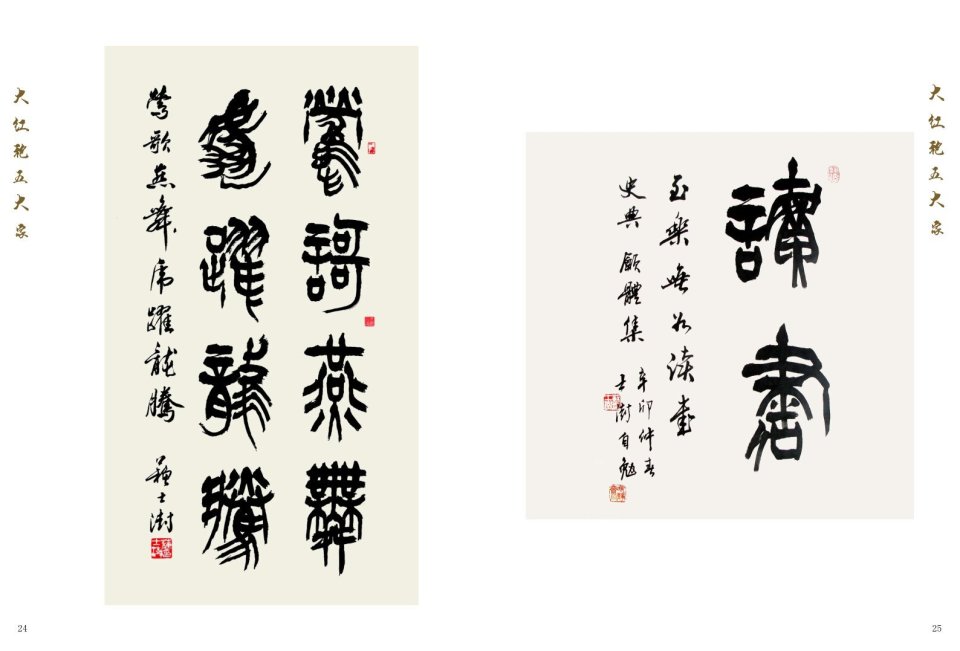 大红袍五大家
鶯謌燕舞
虎躍龍騰
莺歌燕舞虎躍龍騰 蘇士澍
24
大红袍五大家
讀書
至樂無如读書
史典 願體集
辛卯仲春
士澍自勉
25